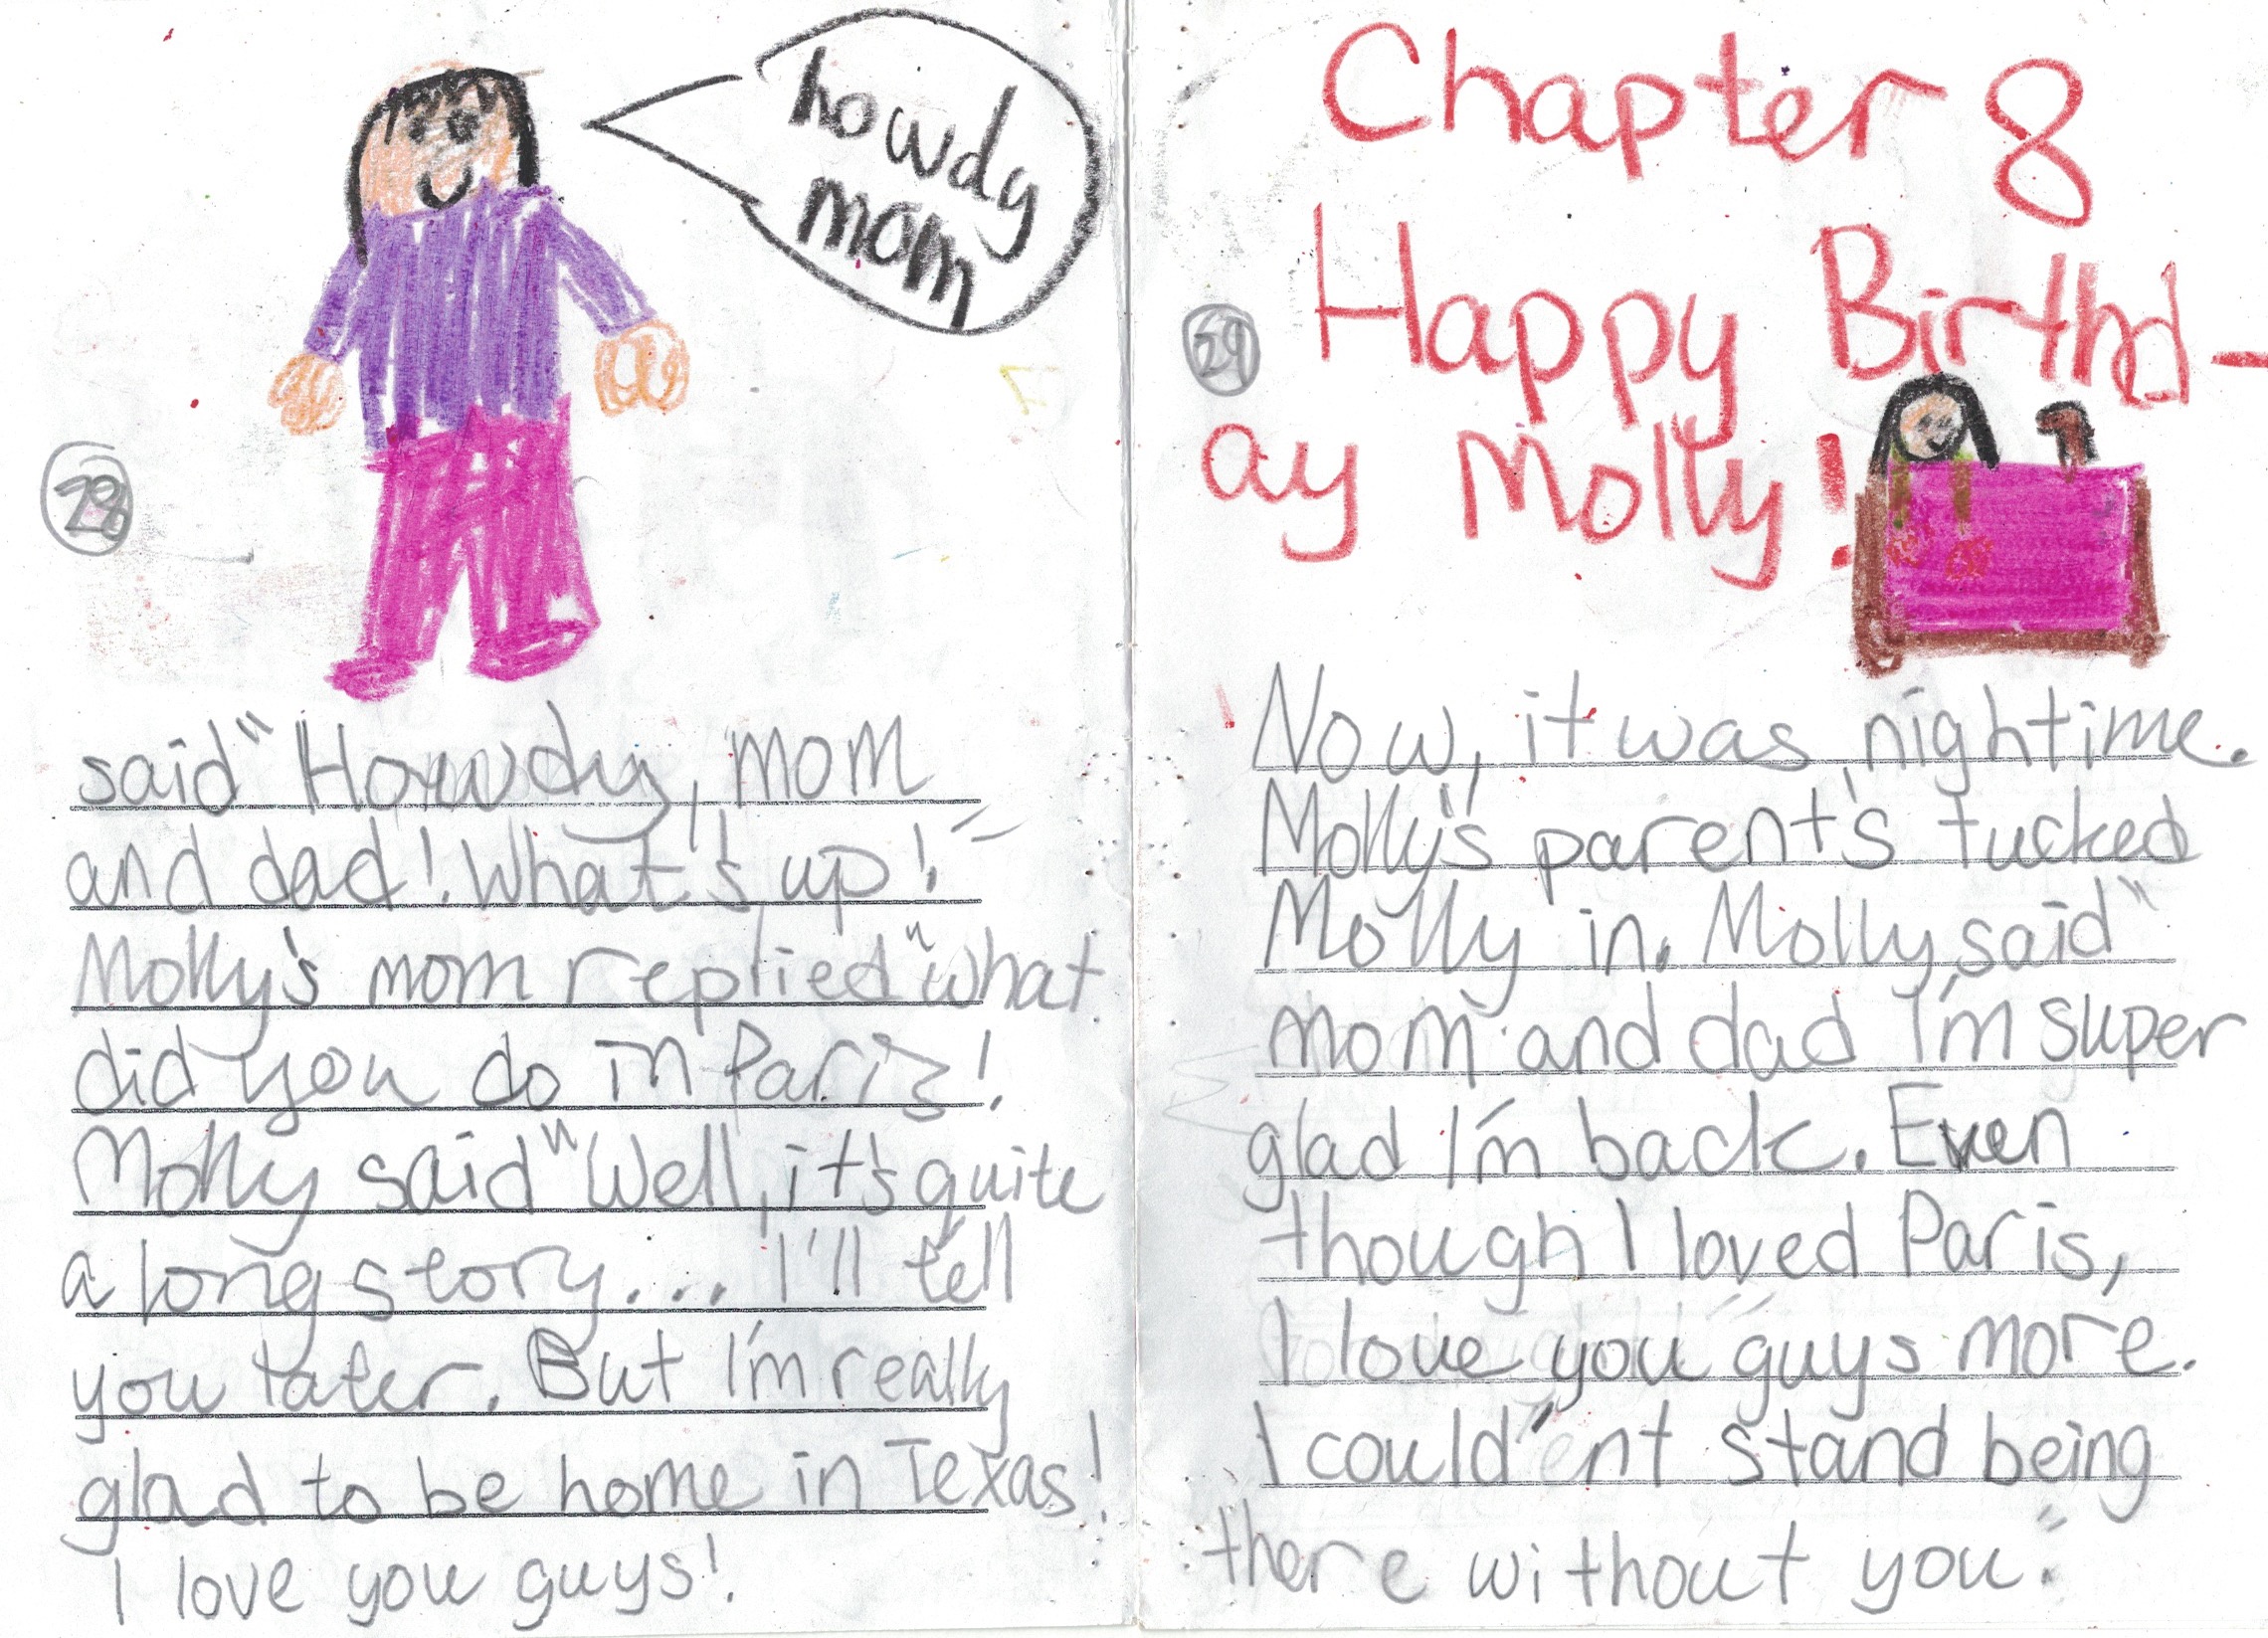 howdy
mom
28
said "Howdy, mom
and dad! What's up!"
Molly's mom replied "what
did you do in Paris?!
Molly said "Well, it's quite
a long story... I'll tell
you later. But I'm really
glad to be home in Texas!
I love you guys!
Chapter 8
Happy Birthd-
29
ay Molly!
Now, it was nightime.
Molly's parent's tucked
Molly in. Molly said "
mom and dad I'm super
glad I'm back. Even
though I loved Paris,
I love you guys more.
I could'ent stand being
there without you."